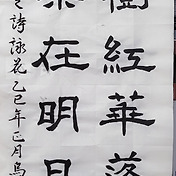 樹紅華落
在明
詩詠花乙巳年正月烏